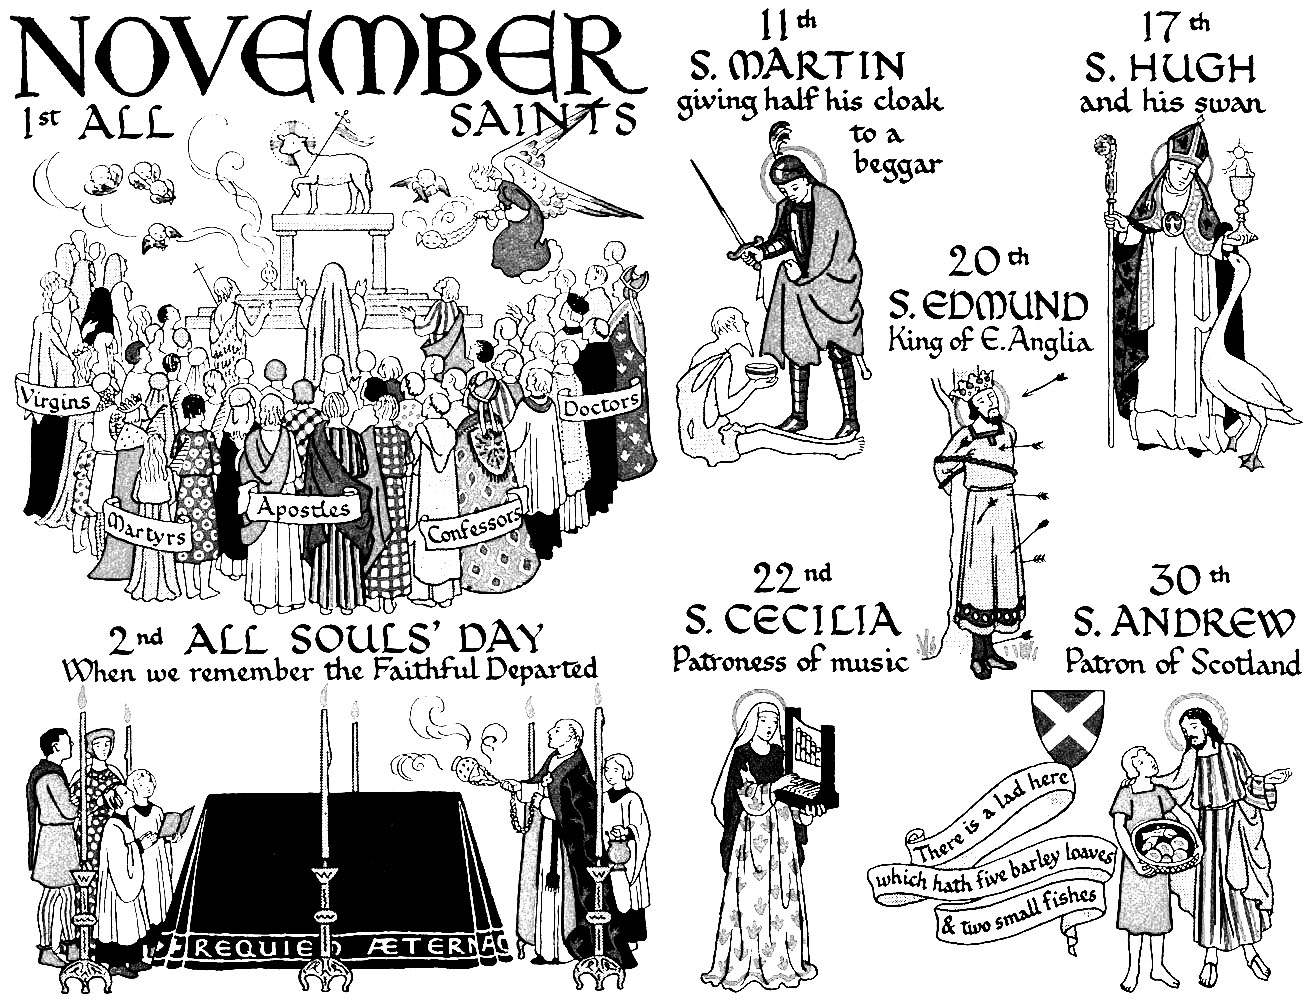 NOVEMBER
1st ALL SAINTS
Virgins
Martyrs
Apostles
Confessors
Doctors
2nd ALL SOULS' DAY
When we remember the Faithful Departed
REQUIE ÆTERNA
11th
S. MARTIN
giving half his cloak
to a
beggar
17th
S. HUGH
and his swan
20th
S. EDMUND
King of E. Anglia
22nd
S. CECILIA
Patroness of music
30th
S. ANDREW
Patron of Scotland
There is a lad here
which hath five barley loaves
& two small fishes